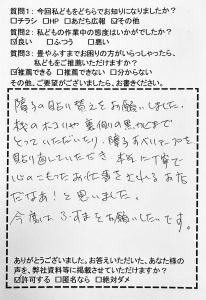 質問1:今回私どもをどちらでお知りになりましたか?
□チラシ □HP □あだち広報 ☑その他
質問2:私どもの作業中の態度はいかがでしたか?
☑良い □ふつう □悪い
質問3:畳やふすまでお困りの方がいらっしゃったら、
私どもをご推薦いただけますか?
☑推薦できる □推薦できない □分からない
その他、ご要望がございましたら、お書きください。
障子の貼り替えをお願いしました。
桟のホコリや裏側の黒ずみまで
とっていただいたり、障子すべり
貼り直していただき 本当に丁寧で
心のこもったお仕事をされるお店
だなあ!と思いました。
今度は ふすまをお願いしたいです。
ありがとうございました。お答えいただいた、あなた様の
声を、弊社資料等に掲載させていただけますか?
☑許可する □匿名なら □絶対ダメ